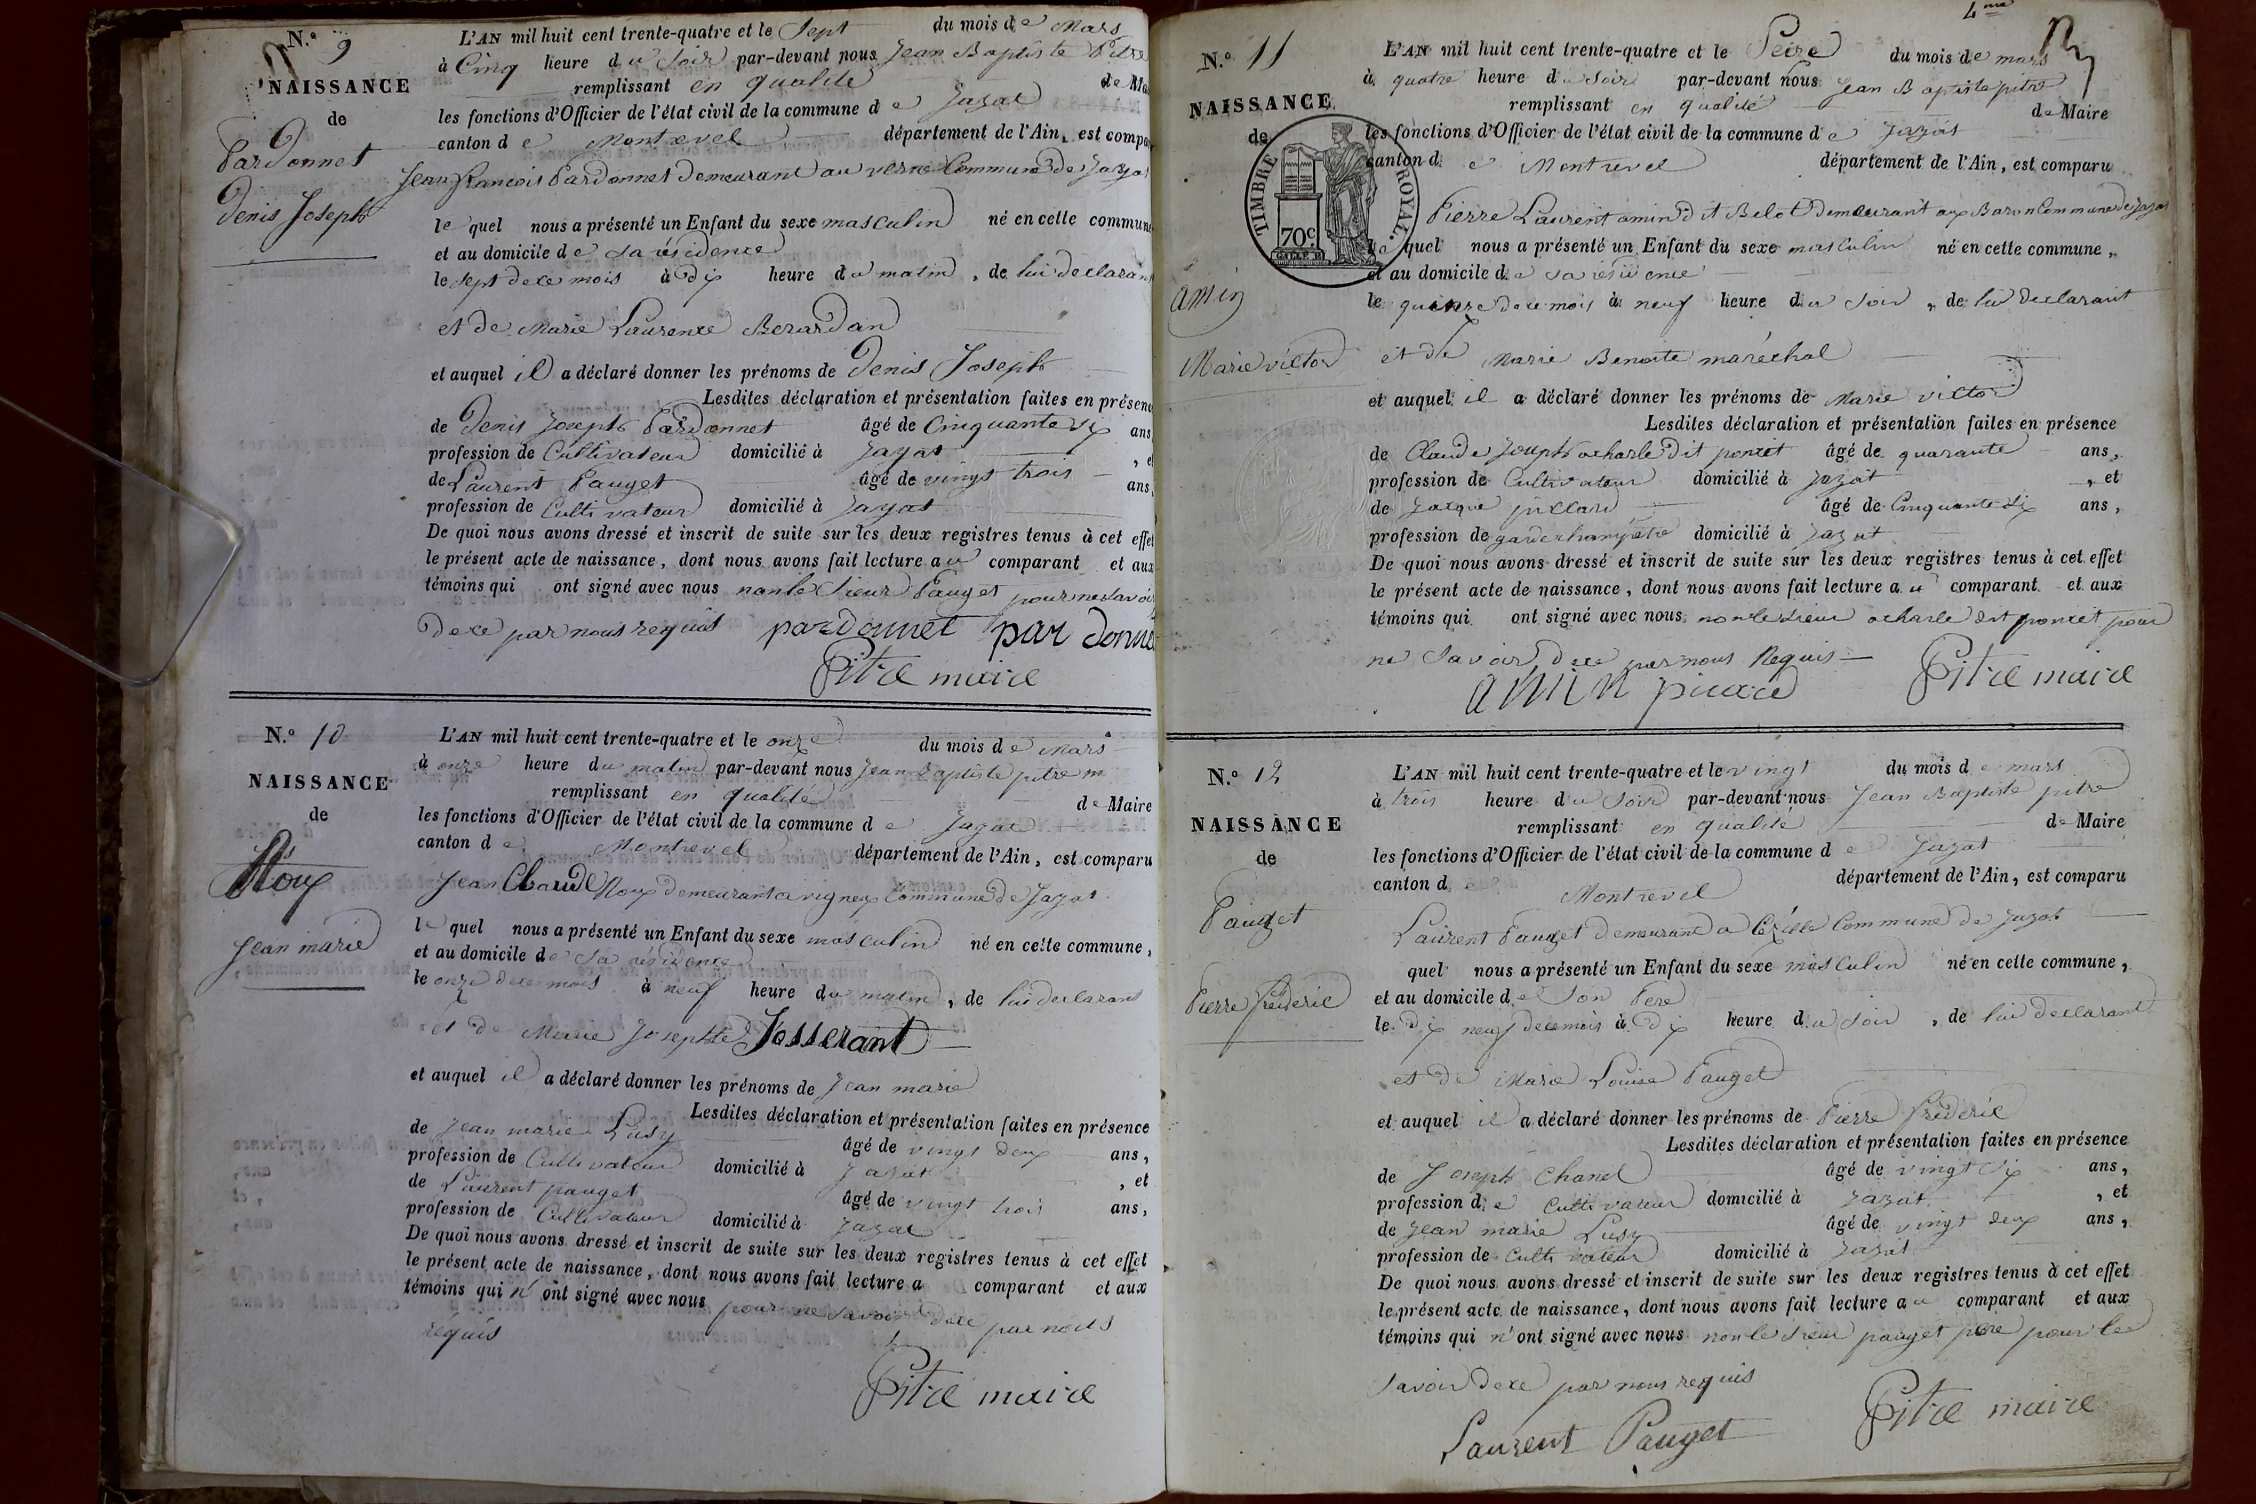 N.° 9
NAISSANCE
de
Pardonnet
Denis Joseph
L'AN mil huit cent trente-quatre et le Sept du mois de Mars
à Cinq heure du Soir par-devant nous Jean Baptiste Pitre
remplissant en qualité de Ma
les fonctions d'Officier de l'état civil de la commune de Jazat
canton de Montrevel département de l'Ain, est compa
Jean francois Pardonnet demeurant au verne Commune de Jaza
le quel nous a présenté un Enfant du sexe masculin né en cette commune
et au domicile de sa résidence
le sept de ce mois à dix heure du matin, de lui declarant
et de Marie Laurence Berardan
et auquel il a déclaré donner les prénoms de Denis Joseph
Lesdites déclaration et présentation faites en présen
de Denis Joseph Pardonnet âgé de Cinquante six ans
profession de Cultivateur domicilié à Jazat, e
de Laurent Pauget âgé de vingt trois ans,
profession de Cultivateur domicilié à Jazat
De quoi nous avons dressé et inscrit de suite sur les deux registres tenus à cet effet
le présent acte de naissance, dont nous avons fait lecture au comparant et aux
témoins qui ont signé avec nous non le Sieur Pauget pour ne savoir
de ce par nous requis pardonnet par donne
Pitre maire
N.° 10
NAISSANCE
de
Roux
Jean marie
L'AN mil huit cent trente-quatre et le onze du mois de Mars
à onze heure du matin par-devant nous Jean Baptiste pitre m
remplissant en qualité de Maire
les fonctions d'Officier de l'état civil de la commune de Jazat
canton de Montrevel département de l'Ain, est comparu
Jean Claude Roux demeurant a vigneux Commune de Jazat
le quel nous a présenté un Enfant du sexe masculin né en cette commune,
et au domicile de sa résidence
le onze de ce mois à neuf heure du matin, de lui declarant
et de Marie Josephte Josserant
et auquel il a déclaré donner les prénoms de Jean marie
Lesdites déclaration et présentation faites en présence
de Jean marie Lusy âgé de vingt deux ans,
profession de Cultivateur domicilié à Jazat, et
de Laurent pauget âgé de vingt trois ans,
profession de Cultivateur domicilié à Jazat
De quoi nous avons dressé et inscrit de suite sur les deux registres tenus à cet effet
le présent acte de naissance, dont nous avons fait lecture a comparant et aux
témoins qui n'ont signé avec nous pour ne savoir de ce par nous
réquis
Pitre maire
4me
N.° 11
NAISSANCE
de
TIMBRE ROYAL.
70c
amin
Marie victor
L'AN mil huit cent trente-quatre et le Seize du mois de mars
à quatre heure du soir par-devant nous Jean Baptiste pitre
remplissant en qualité de Maire
les fonctions d'Officier de l'état civil de la commune de Jazat
canton de Montrevel département de l'Ain, est comparu
Pierre Laurent amin dit Belot demeurant aux Baron Commune de Jazat
le quel nous a présenté un Enfant du sexe masculin né en cette commune,
et au domicile de sa résidence
le quinze de ce mois à neuf heure du soir, de lui declarant
et de Marie Benoite maréchal
et auquel il a déclaré donner les prénoms de Marie victor
Lesdites déclaration et présentation faites en présence
de Claude Joseph acharle dit poncet âgé de quarante ans,
profession de Cultivateur domicilié à Jazat, et
de Jacque âgé de Cinquante six ans,
profession de garde champêtre domicilié à Jazat
De quoi nous avons dressé et inscrit de suite sur les deux registres tenus à cet effet
le présent acte de naissance, dont nous avons fait lecture au comparant et aux
témoins qui ont signé avec nous non le sieur acharle dit poncet pour
ne Savoir de ce par nous Requis
amin Pitre maire
N.° 12
NAISSANCE
de
Pauget
Pierre frederic
L'AN mil huit cent trente-quatre et le vingt du mois de mars
à trois heure du Soir par-devant nous Jean Baptiste pitre
remplissant en qualité de Maire
les fonctions d'Officier de l'état civil de la commune de Jazat
canton de Montrevel département de l'Ain, est comparu
Laurent Pauget demeurant a Cézille Commune de Jazat
quel nous a présenté un Enfant du sexe masculin né en cette commune,
et au domicile de Son Pere
le dix neuf de ce mois à dix heure du soir, de lui declarant
et de Marie Louise Pauget
et auquel il a déclaré donner les prénoms de Pierre frederic
Lesdites déclaration et présentation faites en présence
de Joseph Chanel âgé de vingt six ans,
profession de Cultivateur domicilié à Jazat, et
de Jean marie Lusy âgé de vingt deux ans,
profession de Cultivateur domicilié à Jazat
De quoi nous avons dressé et inscrit de suite sur les deux registres tenus à cet effet
le présent acte de naissance, dont nous avons fait lecture au comparant et aux
témoins qui n'ont signé avec nous non le sieur pauget pere pour le
savoir de ce par nous requis
Laurent Pauget Pitre maire